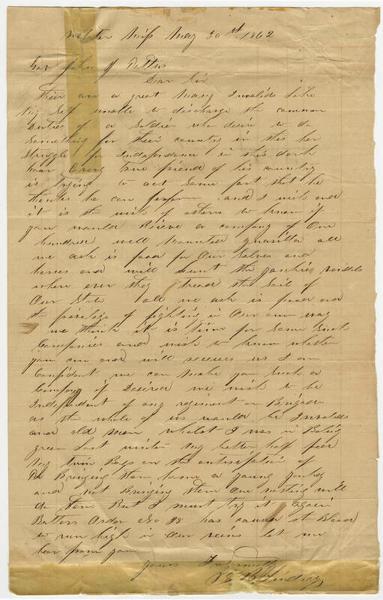 Webster Miss May 30th 1862
Gov John J Pettus
Dear Sir
There are a great many Invalids like
my self unable to discharge the common
duties of a Soldier who desire to do
Something for their country in this her
Struggle for Independence in this dark
hour Every true friend of his country
is trying to act Some part that he
thinks he can perform and I wish and
it is the wish of others to know if
you would receive a company of One
hundred well mounted guerillas all
we ask is food for Our Selves and
horses and will hunt the yankies
where ever they tread the Soil of
Our State all we ask is food and
the privelige of fighting in Our own way
we think it is time for Some Such
Companies and wish to know whether
you can and will receive us I am
Confident we can make you Such a
Company if desired we wish to be
Independent of any regiment or Brigade
as the whole of us would be Invalids
and old men whilst I was in Boling
green last winter my better half gave
my twin Boys on the anticipation of
Me Bringing them home a young yankey
and not Bringing them One nothing will
do them But I must try it again
Butlers Order No 28 has caused it Blood
to run high in Our veins let me
hear from you
Yours Truly